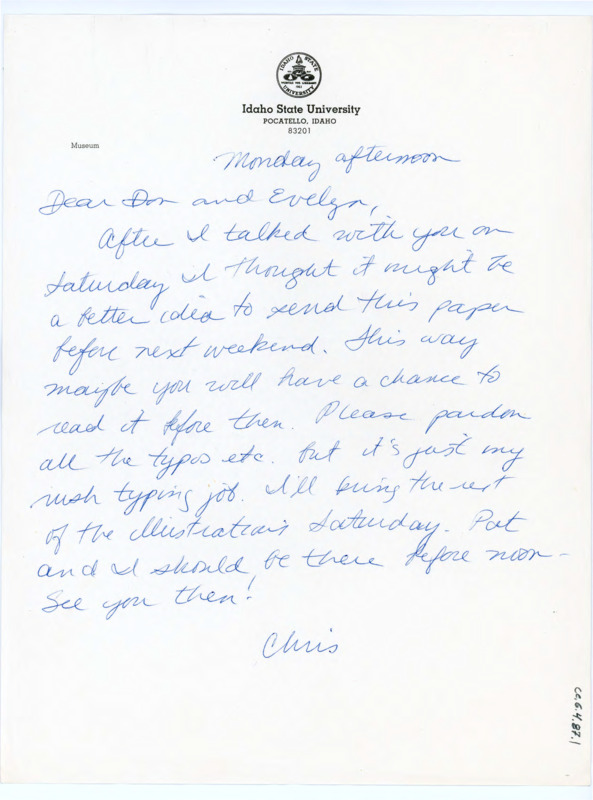 IDAHO STATE
UNIVERSITY
Idaho State University
POCATELLO, IDAHO
83201
Museum
Monday afternoon
Dear Don and Evelyn,
After I talked with you on
Saturday I thought it might be
a better idea to send this paper
before next weekend. This way
maybe you will have a chance to
read it before then. Please pardon
all the typos etc. but it's just my
rush typing job. I'll bring the rest
of the illustrations Saturday. Pat
and I should be there before noon –
See you then!
Chris
CC.6.4.87.1